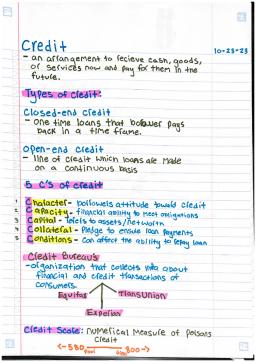 Credit
10-23-23
- an arrangement to recieve cash, goods,
or services now and pay for them in the
future.
Types of credit:
Closed-end credit
- one time loans that borrower pays
back in a time frame.
open-end credit
- line of credit which loans are made
on a continuous basis
5 C's of credit
1 Character - borrowers attitude toward credit
2 Capacity - financial ability to meet obligations
3 Capital - refers to assets/networth
4 Collateral - Pledge to ensure loan payments
5 Conditions - Can affect the ability to repay loan
Credit Bureau's
- organization that collects info about
financial and credit transactions of
consumers.
Equifax TransUnion
Experion
Credit Scale: numerical Measure of persons
credit
<-580 800->
Poor